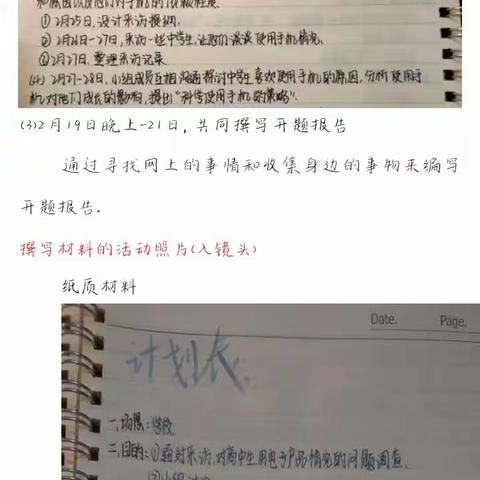 ①2月25日,设计采访提纲.
②2月26日-27日,采访一些中学生,让他们谈谈使用手机情况.
③2月27日,整理采访记录.
(4) 2月27-28日,小组成员互相沟通探讨中学生喜欢使用手机的原因,分析使用手
机对他们成长的影响,提出“科学使用手机的策略”.
(3)2月19日晚上-21日,共同撰写开题报告
通过寻找网上的事情和收集身边的事物来编写
开题报告.
撰写材料的活动照片(入镜头)
纸质材料
Date.    Page.
计划表
一、场景:学校
二、目的:①通过采访,对高中生用电子产品情况的问题调查.